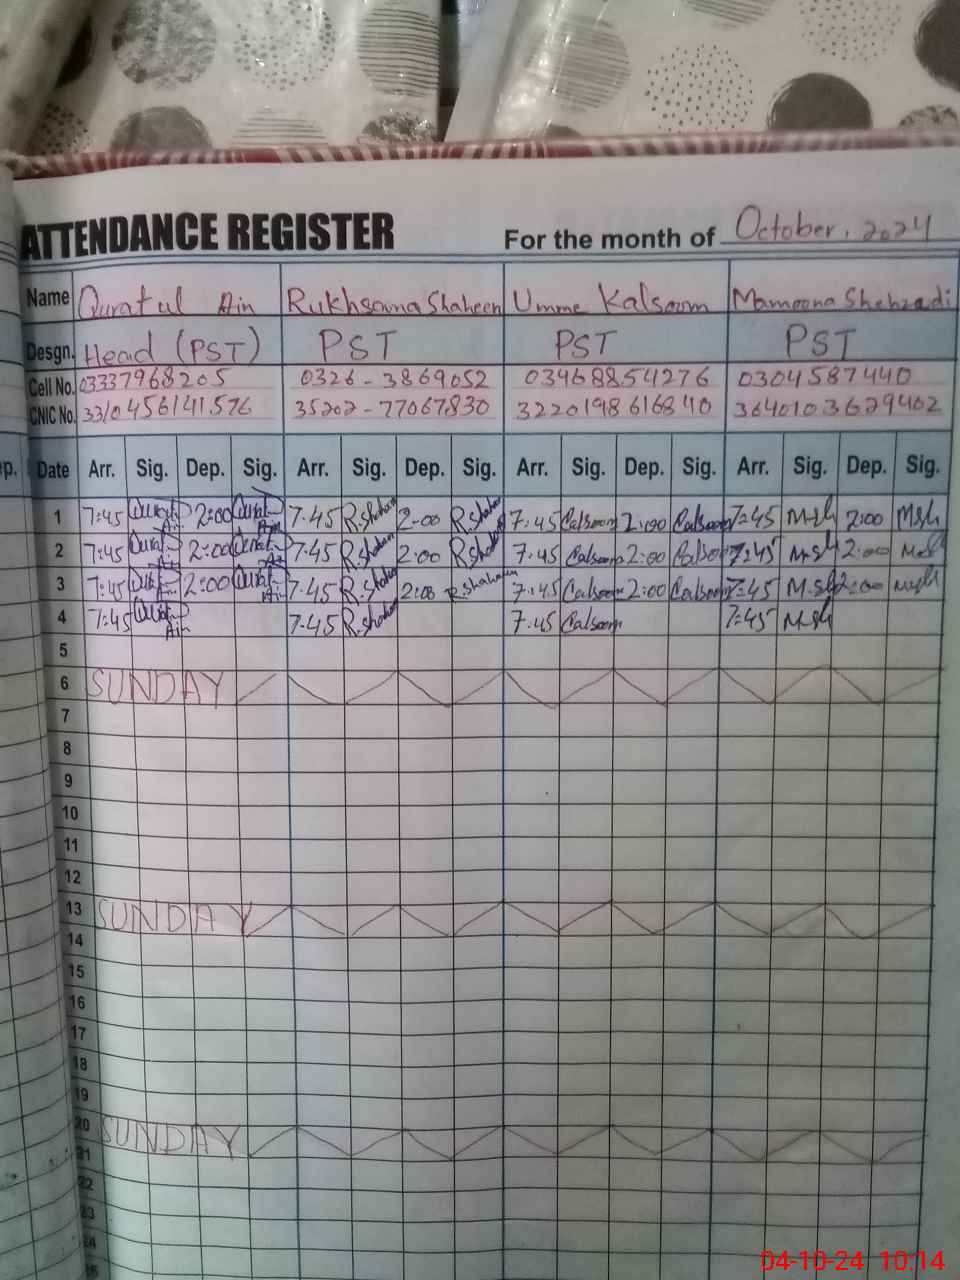 ATTENDANCE REGISTER For the month of October, 2024
Name Quratul Ain Rukhsana Shaheen Umme Kalsoom Mamoona Shehzadi
Desgn. Head (PST) PST PST PST
Cell No. 03337968205 0326-3869052 03468854276 0304587440
CNIC No. 3310456141576 35202-77067830 3220198616840 3640103629402
ep. Date Arr. Sig. Dep. Sig. Arr. Sig. Dep. Sig. Arr. Sig. Dep. Sig. Arr. Sig. Dep. Sig.
1 7:45 Qurat-Ain 2:00 Qurat-Ain 7.45 R.Shaheen 2-00 R.Shaheen 7.45 Calsoom 2:00 Calsoom 7=45 M.sh 2:00 Msh
2 7:45 Qurat-Ain 2:00 Qurat-Ain 7.45 R.Shaheen 2:00 R.Shaheen 7.45 Calsoom 2:00 Calsoom 7=45 M.sh 2:00 M.sh
3 7:45 Qurat-Ain 2:00 Qurat-Ain 7.45 R.Shaheen 2:00 R.Shaheen 7.45 Calsoom 2:00 Calsoom 7=45 M.sh 2:00 Msh
4 7:45 Qurat-Ain 7.45 R.Shaheen 7.45 Calsoom 7=45 M.sh
5
6 SUNDAY
7
8
9
10
11
12
13 SUNDAY
14
15
16
17
18
19
20 SUNDAY
21
22
23
24
25
04-10-24 10:14